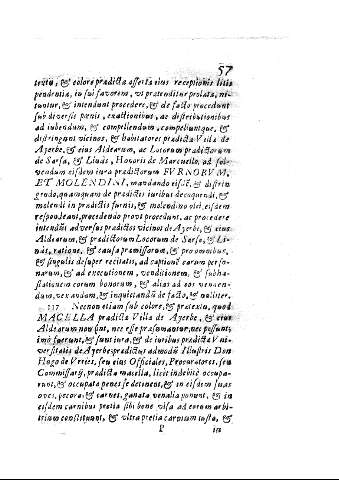 57
textu, & colore prædicta asserta eius receptionis litis
pendentia, in sui favorem, vt prætenditur prolata, ni-
tuntur, & intendunt procedere, & de facto procedunt
sub diversis pœnis, exactionibus, ac distributionibus
ad iubendum, & compellendum, compelluntque, &
distringunt vicinos, & habitatores prædicta Villa de
Ayerbe, & eius Aldearum, ac Locorum prædictorum
de Sarsa, & Linás, Honoris de Marcuello, ad sol-
vendum eisdem iura prædictorum FVRNORVM,
ET MOLENDINI, mandando eisd. & distrin
gendo, quamquam de prædictis iuribus decoquendi, &
molendi in prædictis furnis, & molendino nisi, eisdem
respondeant, procedendo prout procedunt, ac procedere
intendũt adversus prædictos vicinos de Ayerbe, & eius
Aldearum, & prædictorum Locorum de Sarsa, & Li-
nás, ratione, & causa præmissorum, & pro omnibus,
& singulis desuper recitatis, ad captionē earum perso-
narum, & ad executionem, venditionem, & subha-
stationem earum bonorum, & alias ad eos vexen-
dum, vexandum, & inquietandũ de facto, & taliter.
117 Necnon etiam sub colore, & prætextu, quod
MACELLA prædicta Villa de Ayerbe, & eius
Aldearum non sint, nec esse præsumantur, nec possunt,
imò fuerunt, & sunt iura, & de iuribus prædicta Vni-
versitatis de Ayerbe prædictus admodũ Illustris Don
Hugo de Vrries, seu eius Officiales, Procuratores, seu
Commissarij, prædicta macella, licèt indebitè occupa-
runt, & occupata penes se detinent, & in eisdem suas
oves, pecora, & carnes, gravata venalia ponunt, & in
eisdem carnibus pretia sibi bene visa ad eorum arbi-
trium constituunt, & vltra pretia carnium iusta, &
P